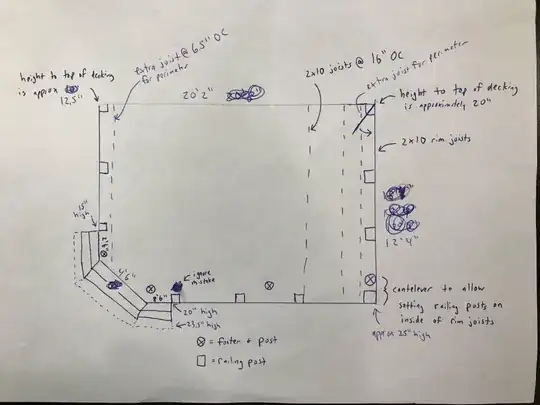 extra joist @ 6.5" OC
for perimeter
height to top of decking
is approx
12.5"
20'2"
2x10 joists @ 16" OC
extra joist for perimeter
height to top of decking
is approximately 20"
2x10 rim joists
12'4"
15"
high
4'6"
ignore
mistake
20" high
23.5" high
cantelever to allow
setting railing posts on
inside of rim joists
approx 25" high
= footer & post
= railing post